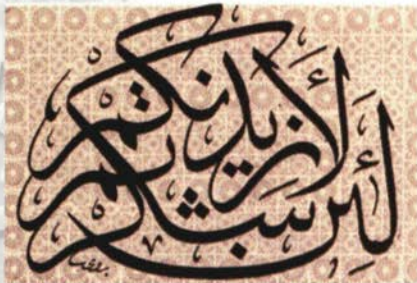 لَئِن شَكَرتُم لأَزيدَنَّكُم